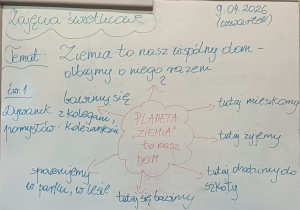 Zajęcia świetlicowe
9.04.2026
(czwartek)
Temat: Ziemia to nasz wspólny dom -
dbajmy o niego razem
?
ćw. 1
Dywanik
pomysłów:
bawimy się
z kolegami,
koleżankami
PLANETA
"ZIEMIA"
to nasz
DOM
tutaj mieszkamy
tutaj żyjemy
tutaj chodzimy do
szkoły
tutaj się bawimy
spacerujemy
w parku, w lesie